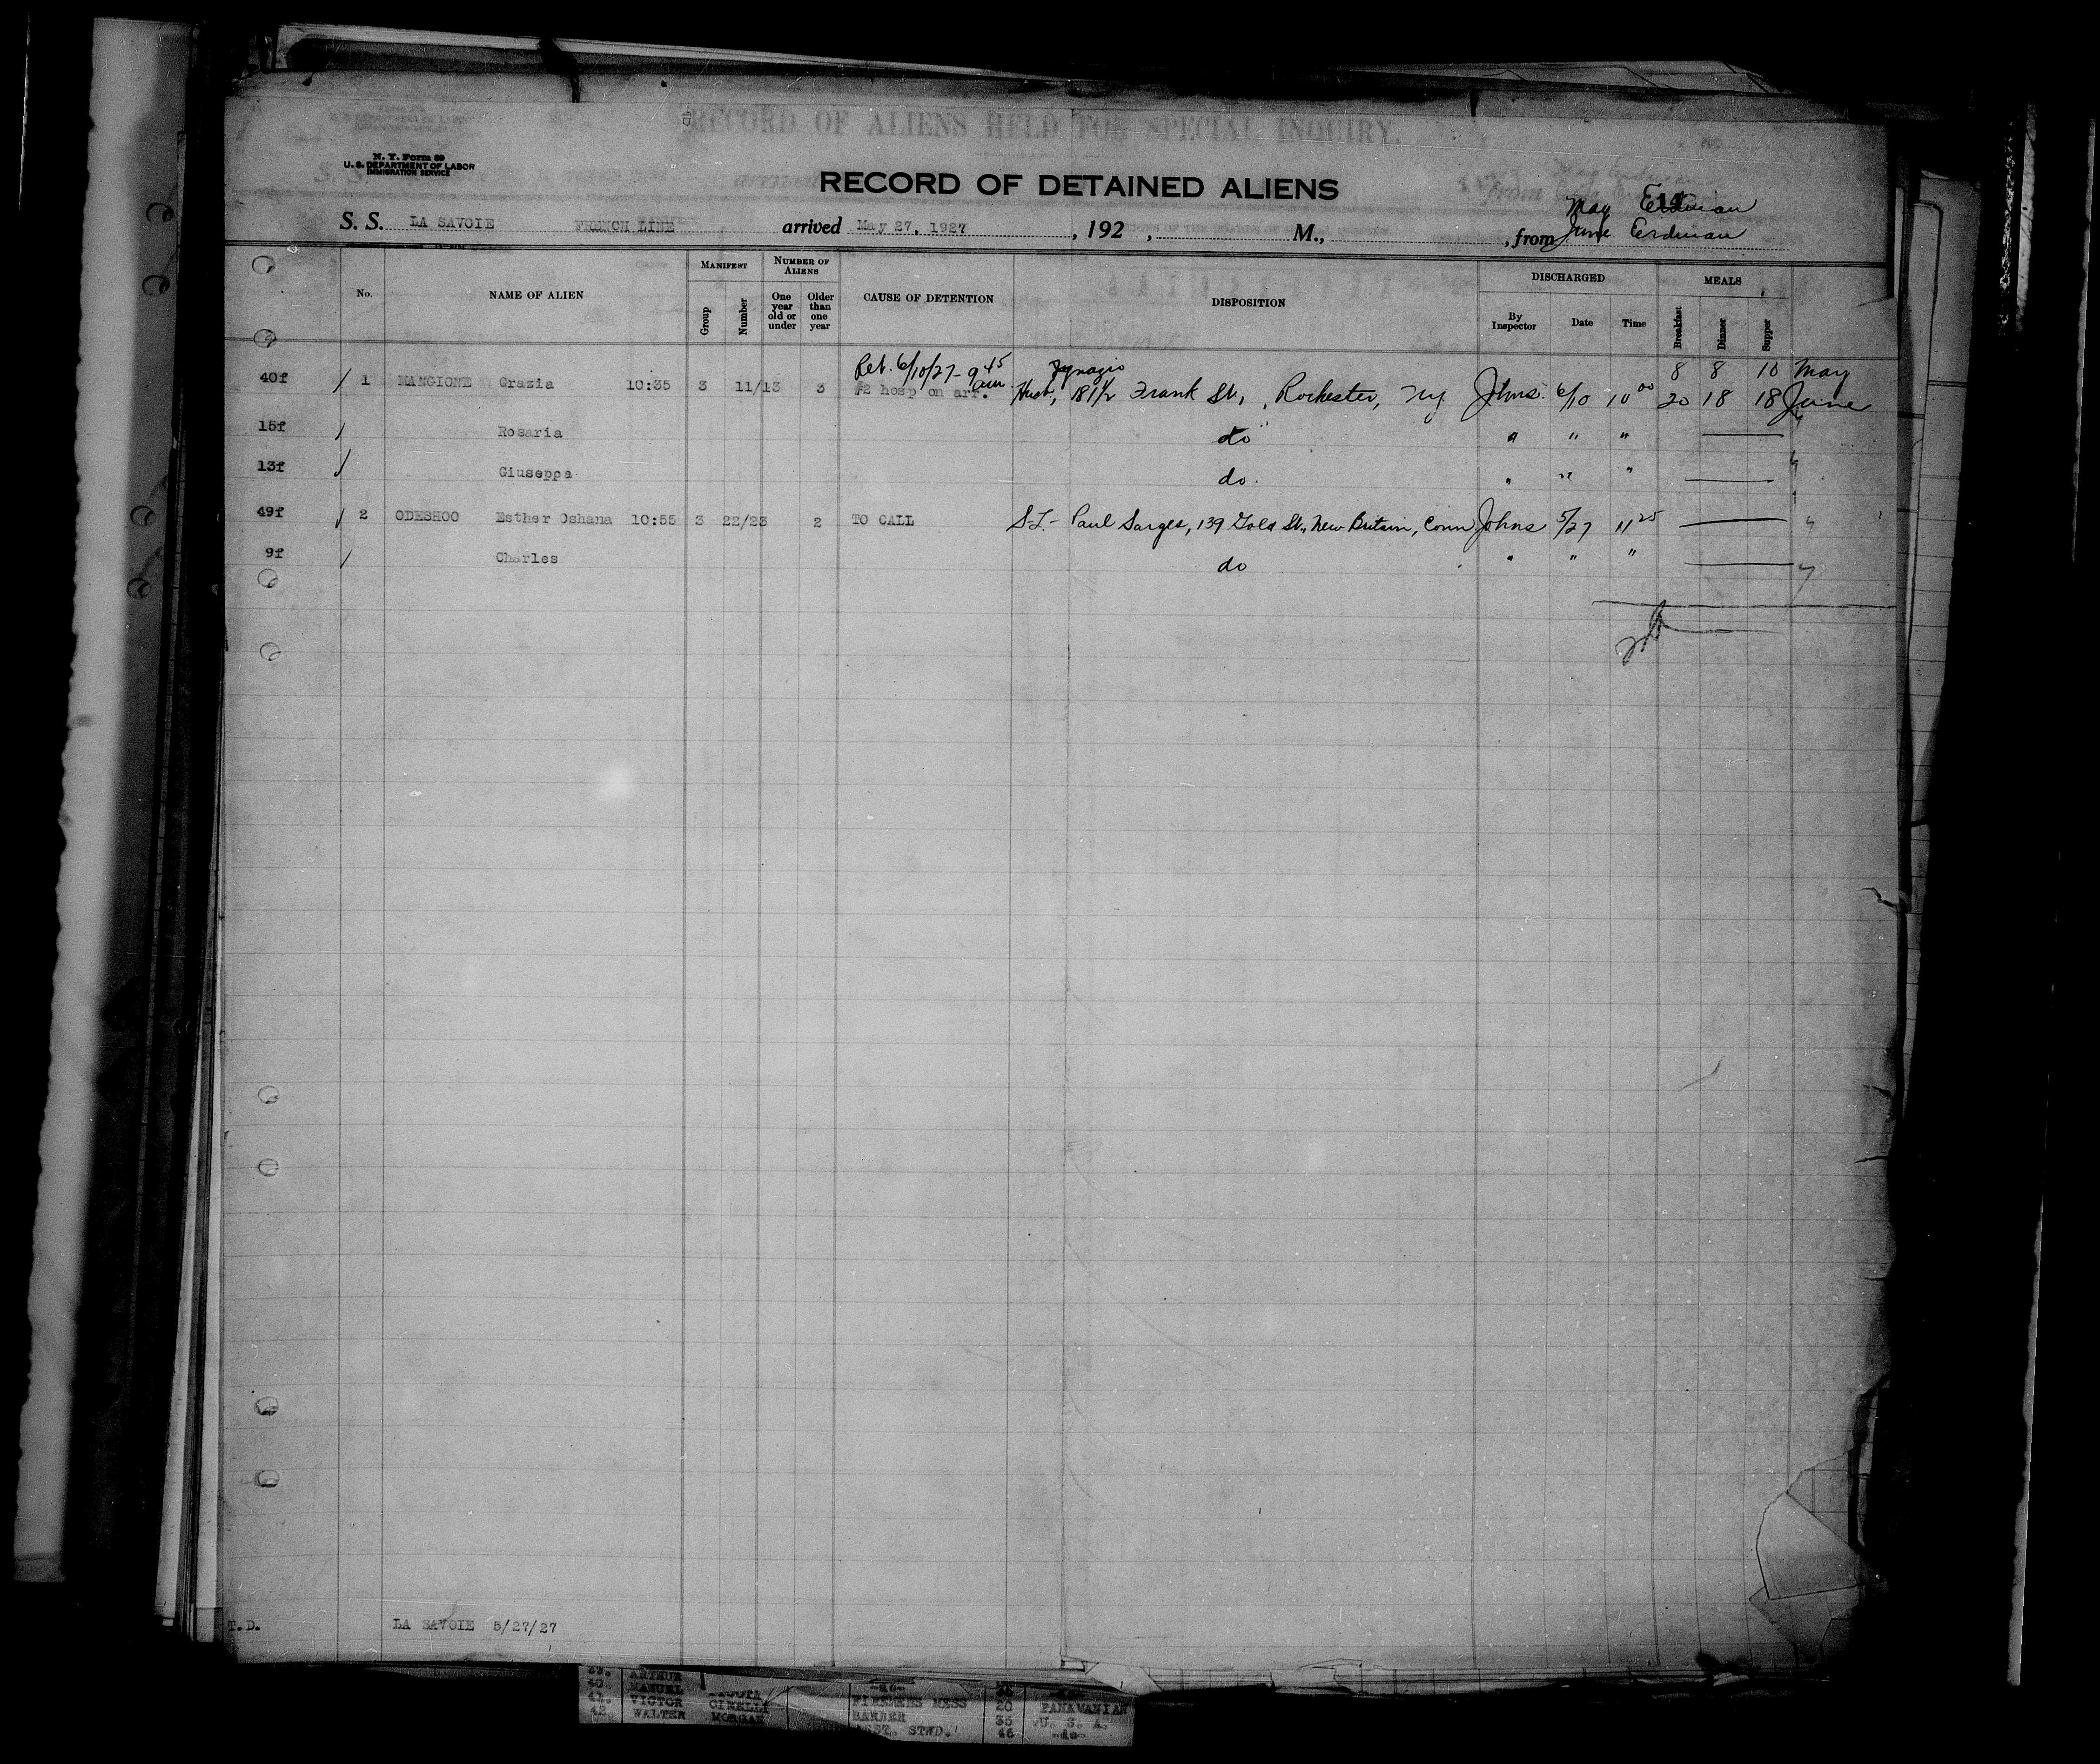 RECORD OF ALIENS HELD FOR SPECIAL INQUIRY.
N. Y. Form 59
U. S. DEPARTMENT OF LABOR
IMMIGRATION SERVICE
RECORD OF DETAINED ALIENS
May Erdman
S. S. LA SAVOIE FRENCH LINE arrived May 27, 1927, 192 , M., , from June Erdman
No. NAME OF ALIEN MANIFEST Group Number NUMBER OF ALIENS One year old or under Older than one year CAUSE OF DETENTION DISPOSITION DISCHARGED By Inspector Date Time MEALS Breakfast Dinner Supper
Ret. 6/10/27 - 9 45 am Ignazio 8 8 10 May
40f 1 MANGIONE Grazia 10:35 3 11/13 3 #2 hosp on arr. Husb, 181 1/2 Frank St, Rochester, NY Johns 6/10 10 00 20 18 18 June
15f Rosaria do " " "
13f Giuseppa do. " " "
49f 2 ODESHOO Esther Oshana 10:55 3 22/23 2 TO CALL Paul Sarges, 139 Gold St, New Britain, Conn Johns 5/27 11 25
9f Charles do " " "
T.D. LA SAVOIE 5/27/27
ARTHUR
40. MANUEL
41. VICTOR CINELLI FIREMENS MESS 20 PANAMANIAN
42. WALTER MORGAN BARBER 35 U. S. A.
ASST. STWD. 46 -do-